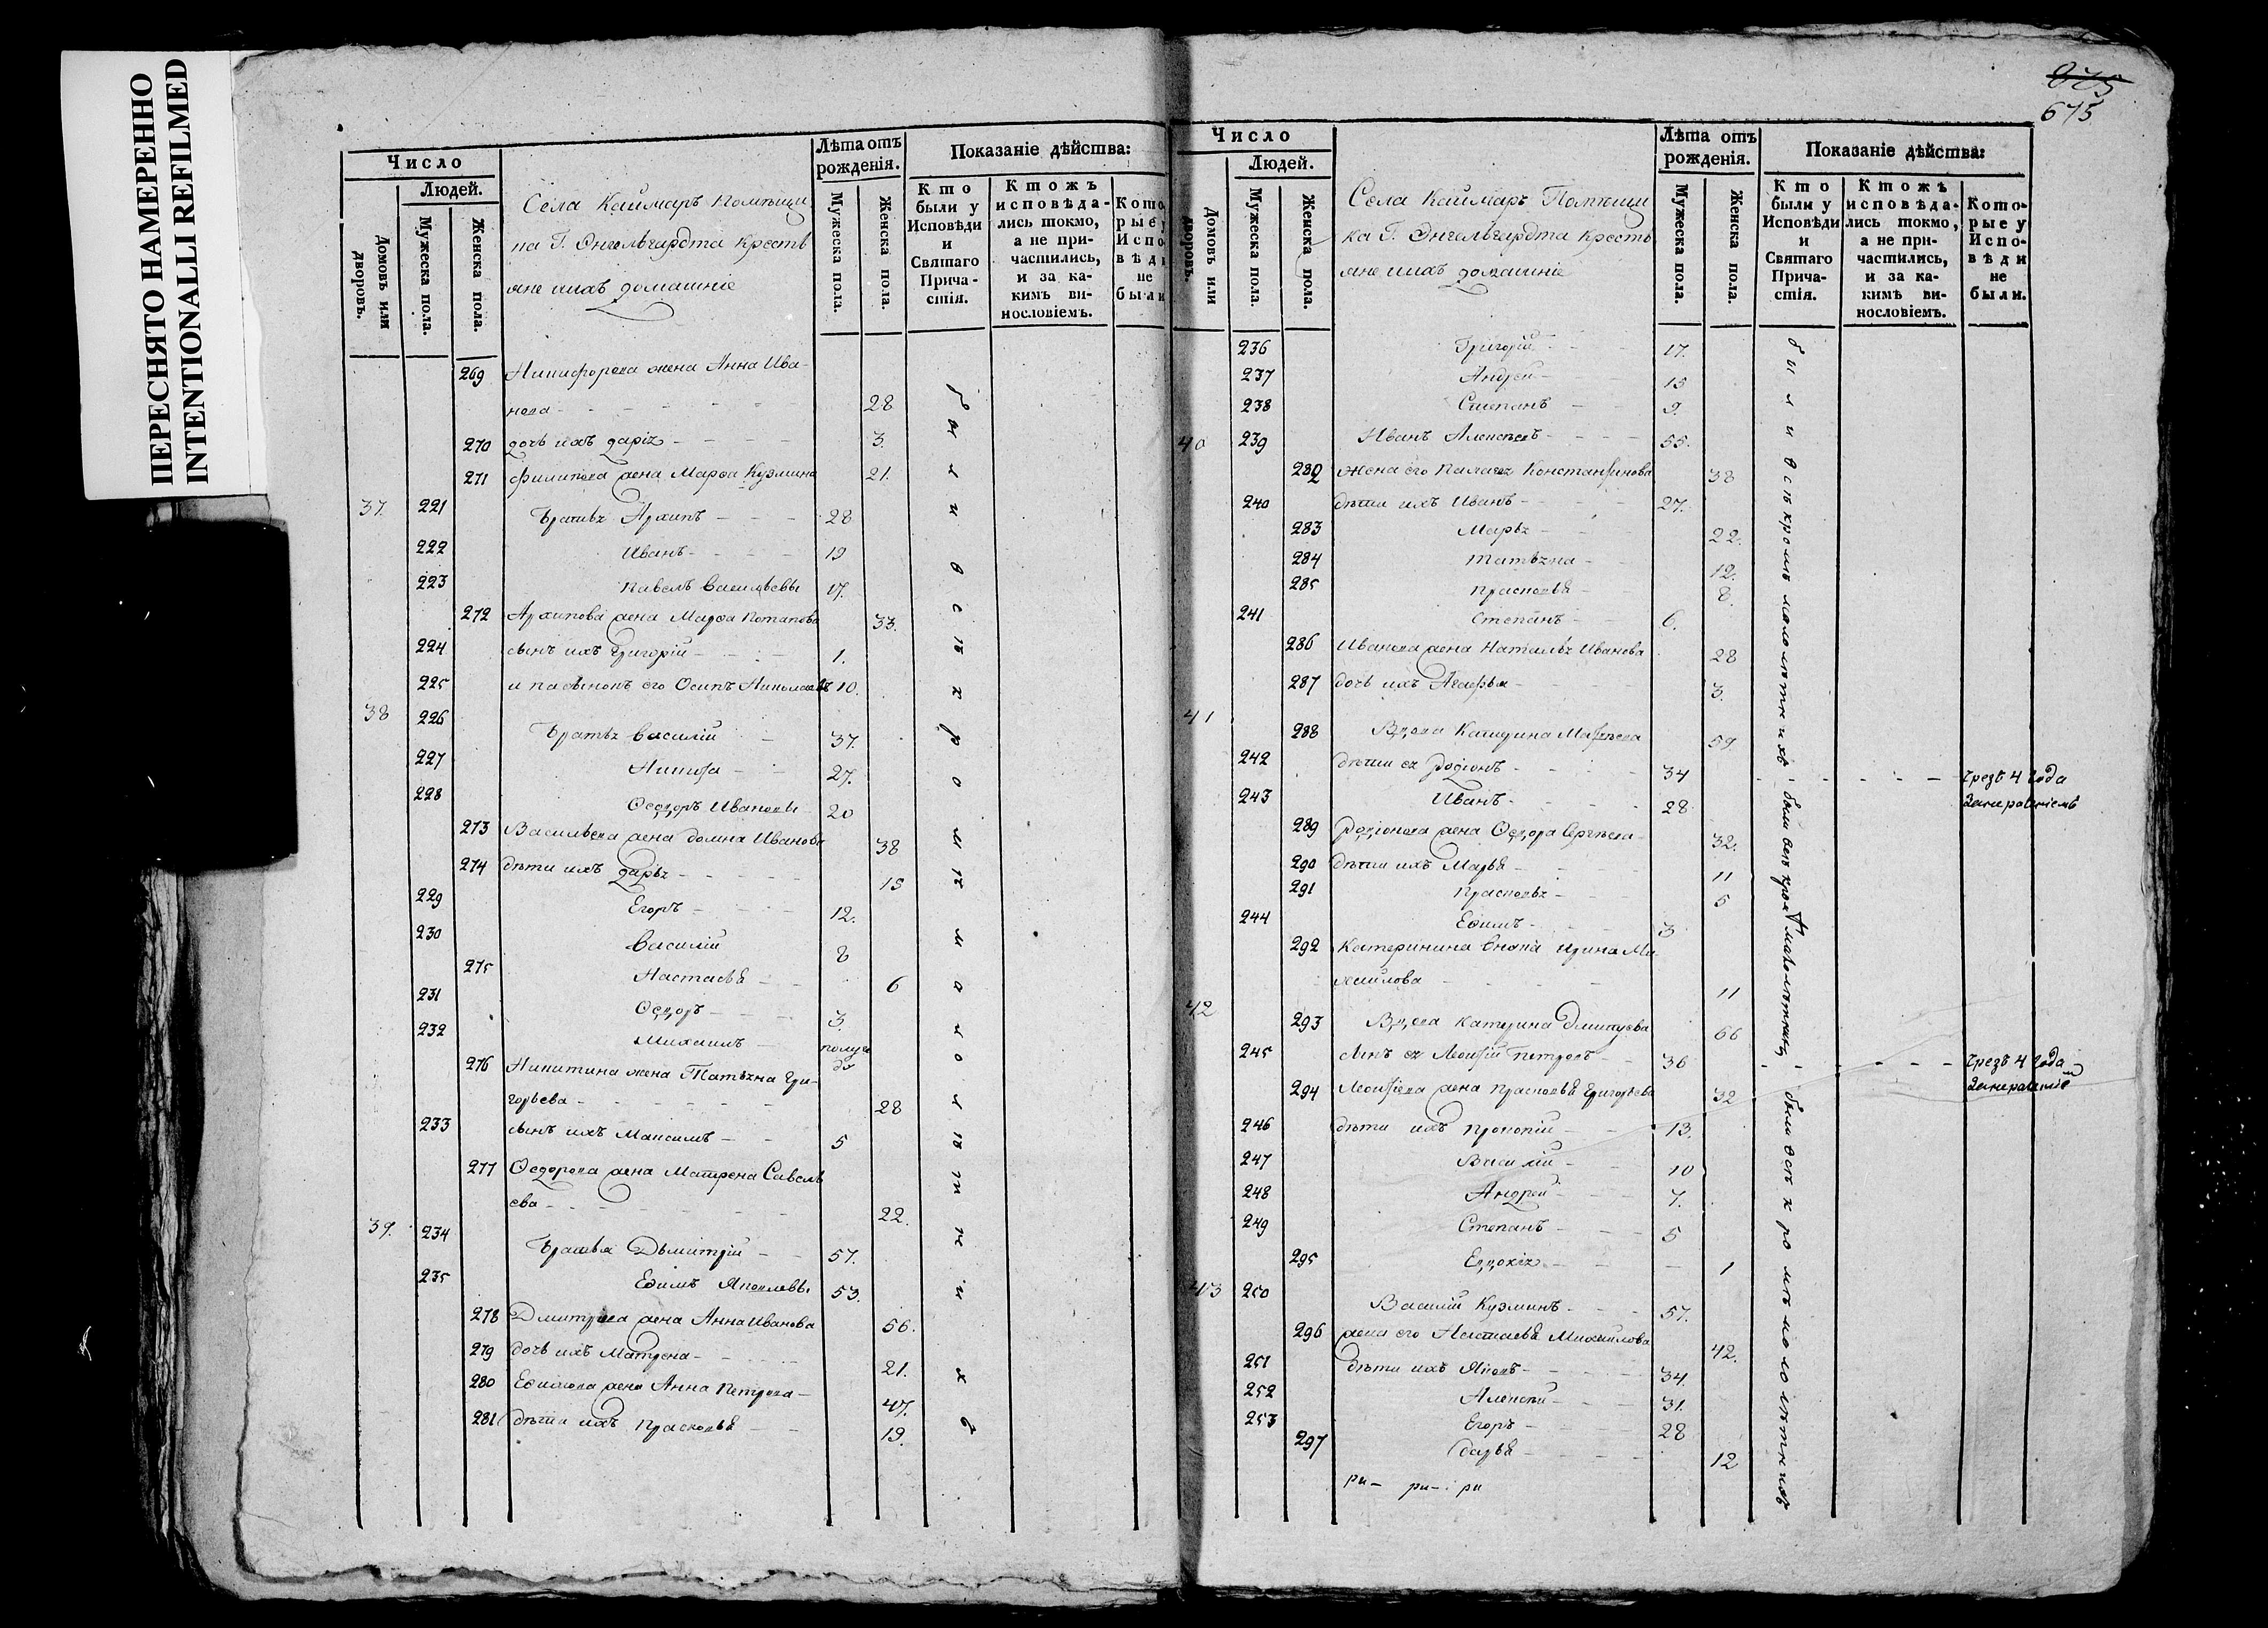 ПЕРЕСНЯТО НАМЕРЕННО
INTENTIONALLI REFILMED
675
Число
Людей.
Домовъ или дворовъ.
Мужеска пола.
Женска пола.
Села Каймаръ помѣщи
ка Г. Энгельгардта крестъ
яне ихъ домашніе
Лѣта отъ рожденія.
Мужеска пола.
Женска пола.
Показаніе дѣйства:
Кто были у Исповѣди и Святаго Прича-стія.
Ктожъ исповѣда-лись токмо, а не при-частились, и за ка-кимъ ви-нословіемъ.
Кото рые у Испо вѣди не были
269 Никифорова жена Анна Ива-
нова 28
270 дочь ихъ дарія 3.
271 Филипова жена Марѳа Кузмина 21.
37. 221 Братья Архипъ 28
222 Иванъ 19
223 Павелъ Васильевы 17.
272 Архипова жена Марѳа Потапова 33.
224 сынъ ихъ Григорій 1.
225 и пасынокъ его Осипъ Николаевъ 10.
38 226 Братья Василій 37.
227 Никита 27.
228 Ѳедоръ Ивановы 20
273 Васильева жена домна Иванова 38
274 дѣти ихъ дарья 15
229 Егоръ 12.
230 Василій 8
275 Настасья 6
231 Ѳедоръ 3.
232 Михаилъ полуго
ду
276 Никитина жена Татьяна Гри-
горьева 28
233 сынъ ихъ Максимъ 5
277 Ѳедорова жена Матрена Савель
ева 22.
39. 234 Братья Дьмитрій 57.
235 Еѳимъ Яковлевы 53.
278 Дмитріева жена Анна Иванова 56.
279 дочь ихъ Матрена 21.
280 Еѳимова жена Анна Петрова 47.
281 дѣти ихъ Прасковья 19.
были всѣ кромѣ малолѣтнихъ
Число
Людей.
Домовъ или дворовъ.
Мужеска пола.
Женска пола.
Села Каймаръ Помѣщи
ка Г. Энгельгардта крестъ
яне ихъ домашніе
Лѣта отъ рожденія.
Мужеска пола.
Женска пола.
Показаніе дѣйства:
Кто были у Исповѣди и Святаго Прича-стія.
Ктожъ исповѣда-лись токмо, а не при-частились, и за ка-кимъ ви-нословіемъ.
Кото-рые у Испо-вѣди не были.
236 Григорій 17.
237 Андрей 15
238 Степанъ 9.
40 239 Иванъ Алексѣевъ 55.
282 Жена его Палагея Константинова 38
240 дѣти ихъ Иванъ 27.
283 Марья 22.
284 Татьяна 12.
285 Прасковья 8.
241 Степанъ 6.
286 Иванова жена Наталья Иванова 28
287 дочь ихъ Агафья 3.
41 288 Вдова Катерина Матвѣева 59
242 дѣти ея Родіонъ 34 чрезъ 4 года
243 Иванъ 28
289 Родіонова жена Ѳедора Сергѣева 32.
290 дѣти ихъ Марья 11
291 Прасковья 5
244 Еѳимъ 3
292 Катеринина внука Ирина Ми
хайлова 11
42 293 Вдова Катерина Дмитріева 66
245 сынъ ея Леонтій Петровъ 36 чрезъ 4 года
294 Леонтіева жена Прасковья Григорьева 32
246 дѣти ихъ Прокопій 13.
247 Василій 10
248 Андрей 7.
249 Степанъ 5
295 Евдокія 1
43 250 Василій Кузминъ 57.
296 жена его Настасья Михайлова 42.
251 дѣти ихъ Яковъ 34.
252 Алексѣй 31.
253 Егоръ 28
297 дарья 12
были всѣ кромѣ малолѣтнихъ
были всѣ кромѣ малолѣтнихъ
были всѣ кромѣ малолѣтнихъ